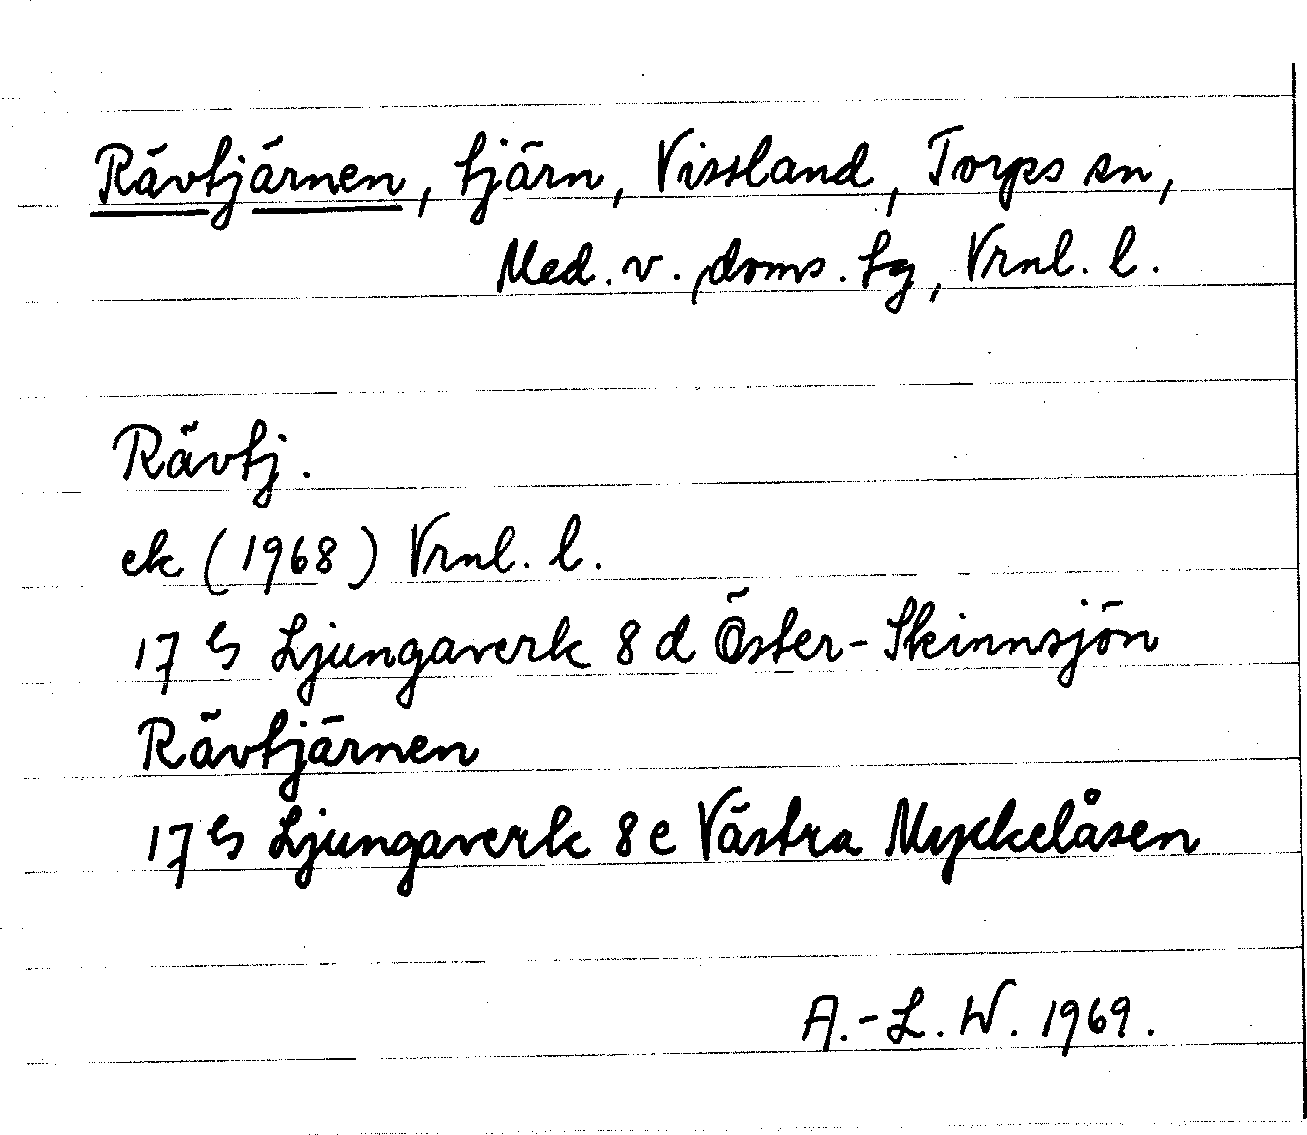 Rävtjärnen, tjärn, Vissland, Torps sn,
Med. v. doms. tg, Vrnl. l.
Rävtj.
ek (1968) Vrnl. l.
17 G Ljungaverk 8 d Öster-Skinnsjön
Rävtjärnen
17 G Ljungaverk 8 e Västra Myckelåsen
A.-L. W. 1969.